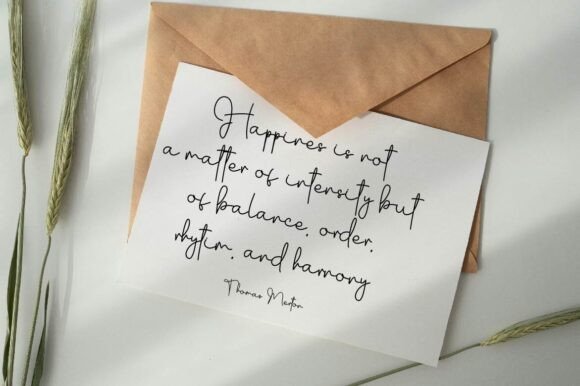 Happines is not
a matter of intensity but
of balance, order,
rhytim, and harmony
Thomas Merton